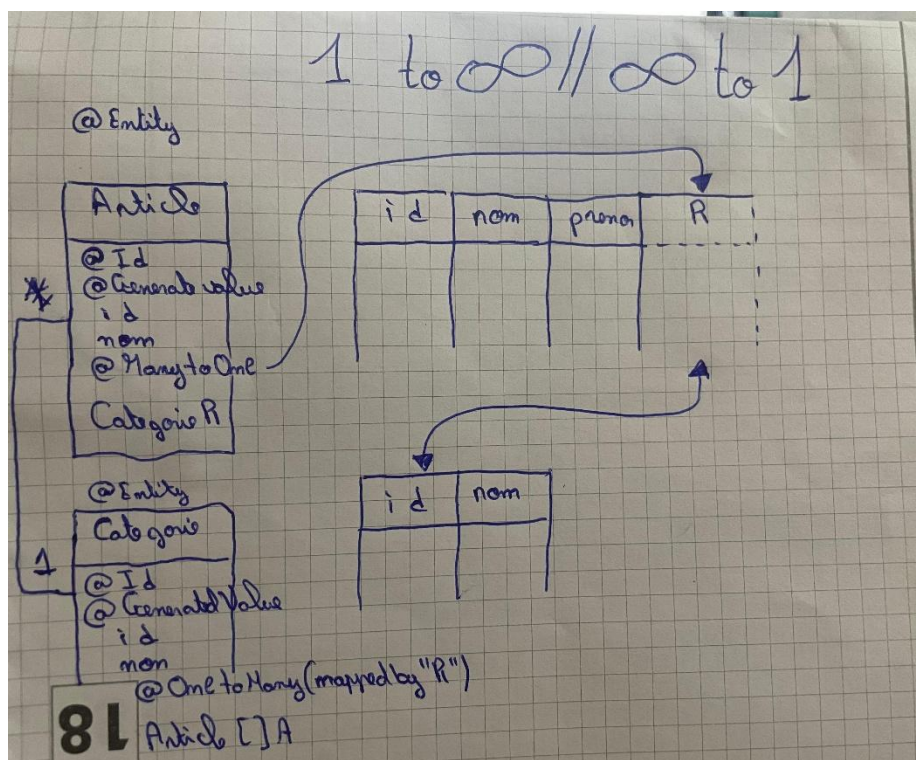 1 to ∞ // ∞ to 1
@Entity
Article
@Id
@Generate value
id
nom
@ManytoOne
Categorie R
*
id nom prenom R
@Entity
Categorie
1
@Id
@GeneratedValue
id
nom
@OnetoMany(mappedby"R")
Article []A
id nom
18